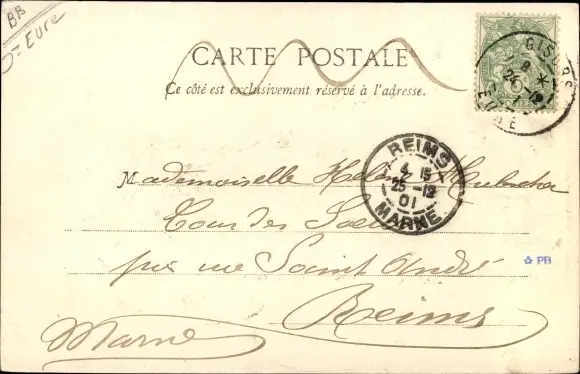 BB
Eure
CARTE POSTALE
Ce côté est exclusivement réservé à l'adresse.
GISORS
EURE
REIMS
4 15
25 -12
01
MARNE
Mademoiselle Hélène
Cour des
près rue Saint André
Reims
Marne
PB